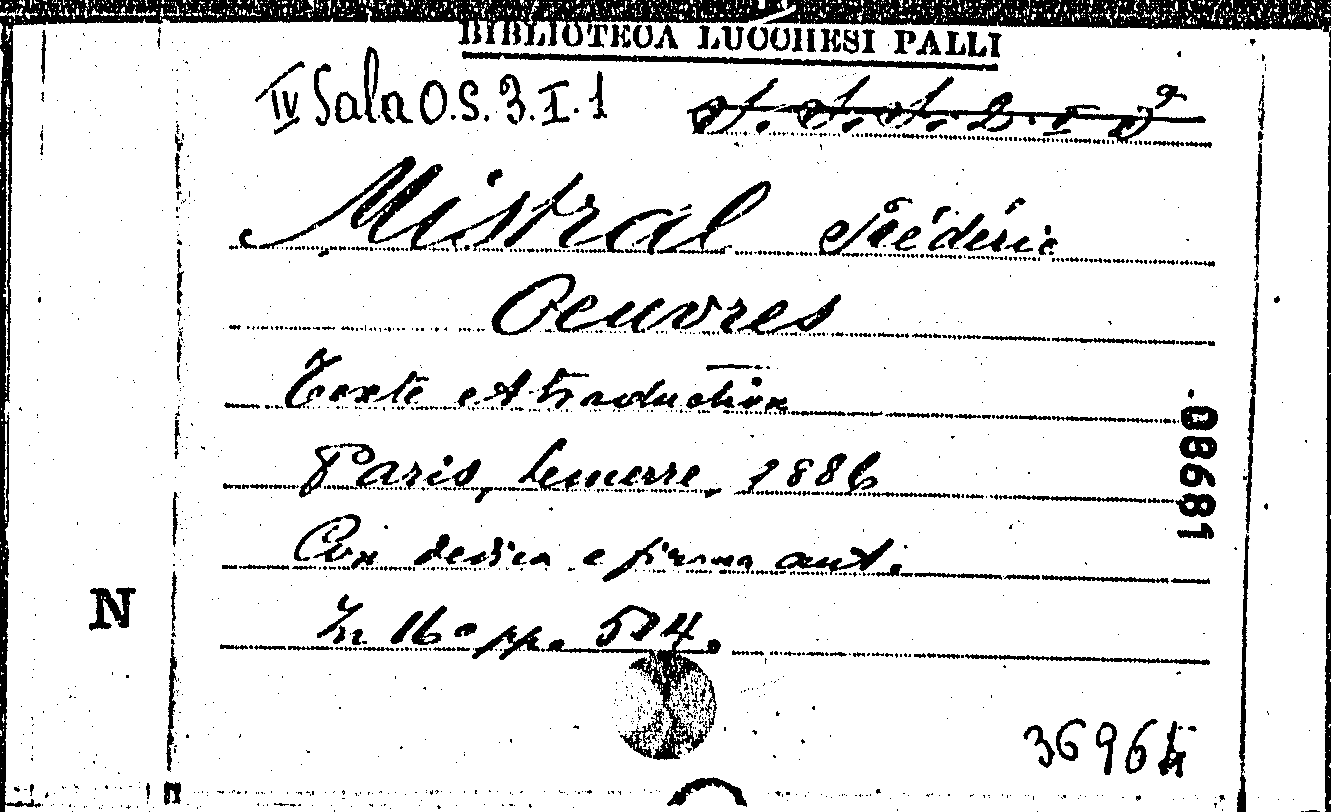 BIBLIOTECA LUCCHESI PALLI
IV Sala O.S. 3. I. 1
Mistral Frédéric
Oeuvres
Texte et traduction
Paris, Lemerre, 1886
08681
Con dedica e firma aut.
N
In 16° pp. 514.